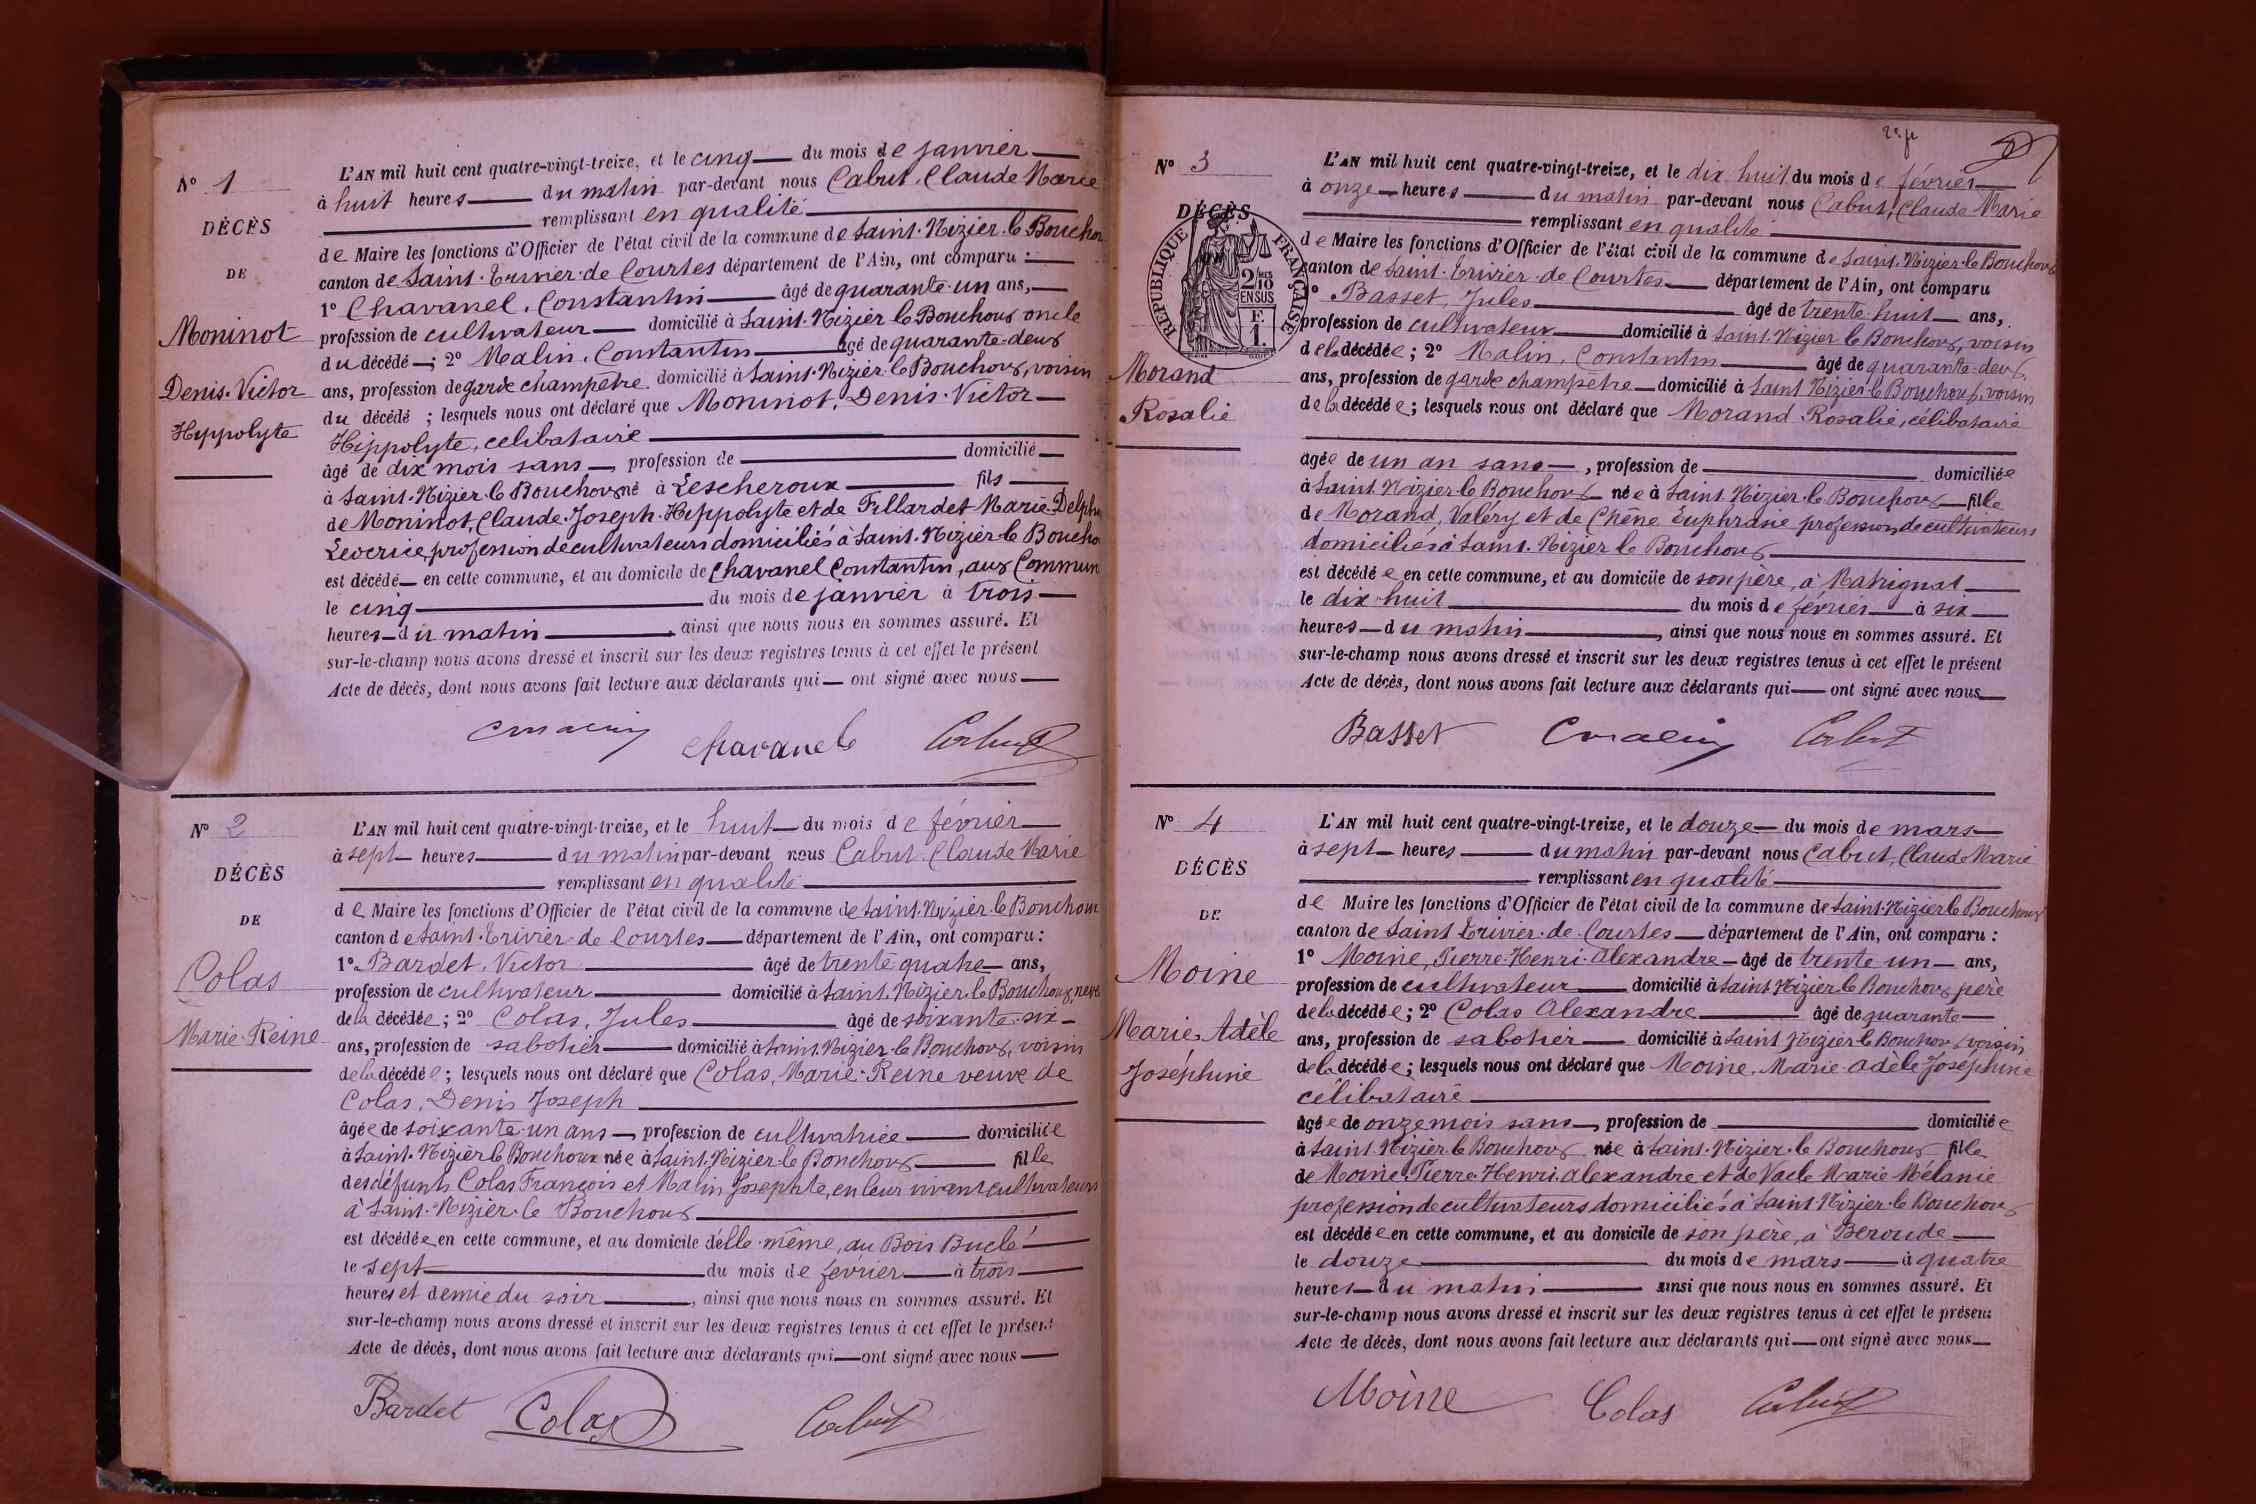 N° 1
DÉCÈS
DE
Moninot
Denis-Victor
Hippolyte
L'AN mil huit cent quatre-vingt-treize, et le cinq du mois de janvier
à huit heures du matin par-devant nous Cabut, Claude Marie
remplissant en qualité
de Maire les fonctions d'Officier de l'état civil de la commune de Saint-Nizier-le Bouchou
canton de Saint-Trivier-de Courtes département de l'Ain, ont comparu :
1° Chavanel, Constantin âgé de quarante-un ans,
profession de cultivateur domicilié à Saint-Nizier le Bouchoux oncle
du décédé ; 2° Malin, Constantin âgé de quarante-deux
ans, profession de garde champêtre domicilié à Saint-Nizier-le Bouchoux, voisin
du décédé ; lesquels nous ont déclaré que Moninot, Denis-Victor
Hippolyte, célibataire
âgé de dix mois sans, profession de domicilié
à Saint-Nizier-le Bouchoux né à Lescheroux fils
de Moninot, Claude-Joseph-Hippolyte et de Fillardet Marie-Delph
profession de cultivateurs domiciliés à Saint-Nizier-le Boucho
est décédé en cette commune, et au domicile de Chavanel Constantin, aux Commun
le cinq du mois de janvier à trois
heures du matin, ainsi que nous nous en sommes assuré. Et
sur-le-champ nous avons dressé et inscrit sur les deux registres tenus à cet effet le présent
Acte de décès, dont nous avons fait lecture aux déclarants qui ont signé avec nous
Cmalin Chavanel Cabut
N° 2
DÉCÈS
DE
Colas
Marie-Reine
L'AN mil huit cent quatre-vingt-treize, et le huit du mois de février
à sept heures du matin par-devant nous Cabut, Claude Marie
remplissant en qualité
de Maire les fonctions d'Officier de l'état civil de la commune de Saint-Nizier-le Bouchou
canton de Saint-Trivier-de Courtes département de l'Ain, ont comparu :
1° Bardet, Victor âgé de trente quatre ans,
profession de cultivateur domicilié à Saint-Nizier le Bouchoux, neve
de la décédée ; 2° Colas, Jules âgé de soixante-six
ans, profession de sabotier domicilié à Saint-Nizier-le Bouchoux, voisin
de la décédée ; lesquels nous ont déclaré que Colas, Marie-Reine veuve de
Colas, Denis Joseph
âgée de soixante-un ans, profession de cultivatrice domiciliée
à Saint-Nizier le Bouchoux née à Saint-Nizier-le Bouchoux fille
des défunts Colas François et Malin Josephte, en leur vivant cultivateurs
à Saint-Nizier-le Bouchoux
est décédée en cette commune, et au domicile d'elle-même, au Bois Buclé
le sept du mois de février à trois
heures et demie du soir, ainsi que nous nous en sommes assuré. Et
sur-le-champ nous avons dressé et inscrit sur les deux registres tenus à cet effet le présent
Acte de décès, dont nous avons fait lecture aux déclarants qui ont signé avec nous
Bardet Colas Cabut
N° 3
DÉCÈS
RÉPUBLIQUE FRANÇAISE
2/10 EN SUS
F. 1.
Morand
Rosalie
L'AN mil huit cent quatre-vingt-treize, et le dix huit du mois de février
à onze heures du matin par-devant nous Cabut, Claude Marie
remplissant en qualité
de Maire les fonctions d'Officier de l'état civil de la commune de Saint-Nizier-le Bouchoux
canton de Saint-Trivier-de Courtes département de l'Ain, ont comparu
1° Basset, Jules âgé de trente-huit ans,
profession de cultivateur domicilié à Saint-Nizier le Bouchoux, voisin
de la décédée ; 2° Malin, Constantin âgé de quarante-deux
ans, profession de garde champêtre domicilié à Saint Nizier-le Bouchoux, voisin
de la décédée ; lesquels nous ont déclaré que Morand Rosalie, célibataire
âgée de un an sans, profession de domiciliée
à Saint-Nizier le Bouchoux née à Saint-Nizier-le Bouchoux fille
de Morand, Valéry et de Chêne Euphrasie profession de cultivateurs
domiciliés à Saint-Nizier le Bouchoux
est décédée en cette commune, et au domicile de son père, à Matrignat
le dix-huit du mois de février à six
heures du matin, ainsi que nous nous en sommes assuré. Et
sur-le-champ nous avons dressé et inscrit sur les deux registres tenus à cet effet le présent
Acte de décès, dont nous avons fait lecture aux déclarants qui ont signé avec nous
Basset Cmalin Cabut
N° 4
DÉCÈS
DE
Moine
Marie-Adèle
Joséphine
L'AN mil huit cent quatre-vingt-treize, et le douze du mois de mars
à sept heures du matin par-devant nous Cabut, Claude Marie
remplissant en qualité
de Maire les fonctions d'Officier de l'état civil de la commune de Saint-Nizier le Bouchoux
canton de Saint Trivier-de-Courtes département de l'Ain, ont comparu :
1° Moine, Pierre-Henri-Alexandre âgé de trente un ans,
profession de cultivateur domicilié à Saint Nizier le Bouchoux père
de la décédée ; 2° Colas Alexandre âgé de quarante
ans, profession de sabotier domicilié à Saint Nizier-le Bouchoux, voisin
de la décédée ; lesquels nous ont déclaré que Moine, Marie-Adèle Joséphine
célibataire
âgée de onze mois sans, profession de domiciliée
à Saint-Nizier le Bouchoux née à Saint-Nizier-le Bouchoux fille
de Moine Pierre-Henri-Alexandre et de Vacle Marie Mélanie
profession de cultivateurs domiciliés à Saint-Nizier-le Bouchoux
est décédée en cette commune, et au domicile de son père, à Beroude
le douze du mois de mars à quatre
heures du matin ainsi que nous nous en sommes assuré. Et
sur-le-champ nous avons dressé et inscrit sur les deux registres tenus à cet effet le présent
Acte de décès, dont nous avons fait lecture aux déclarants qui ont signé avec nous
Moine Colas Cabut